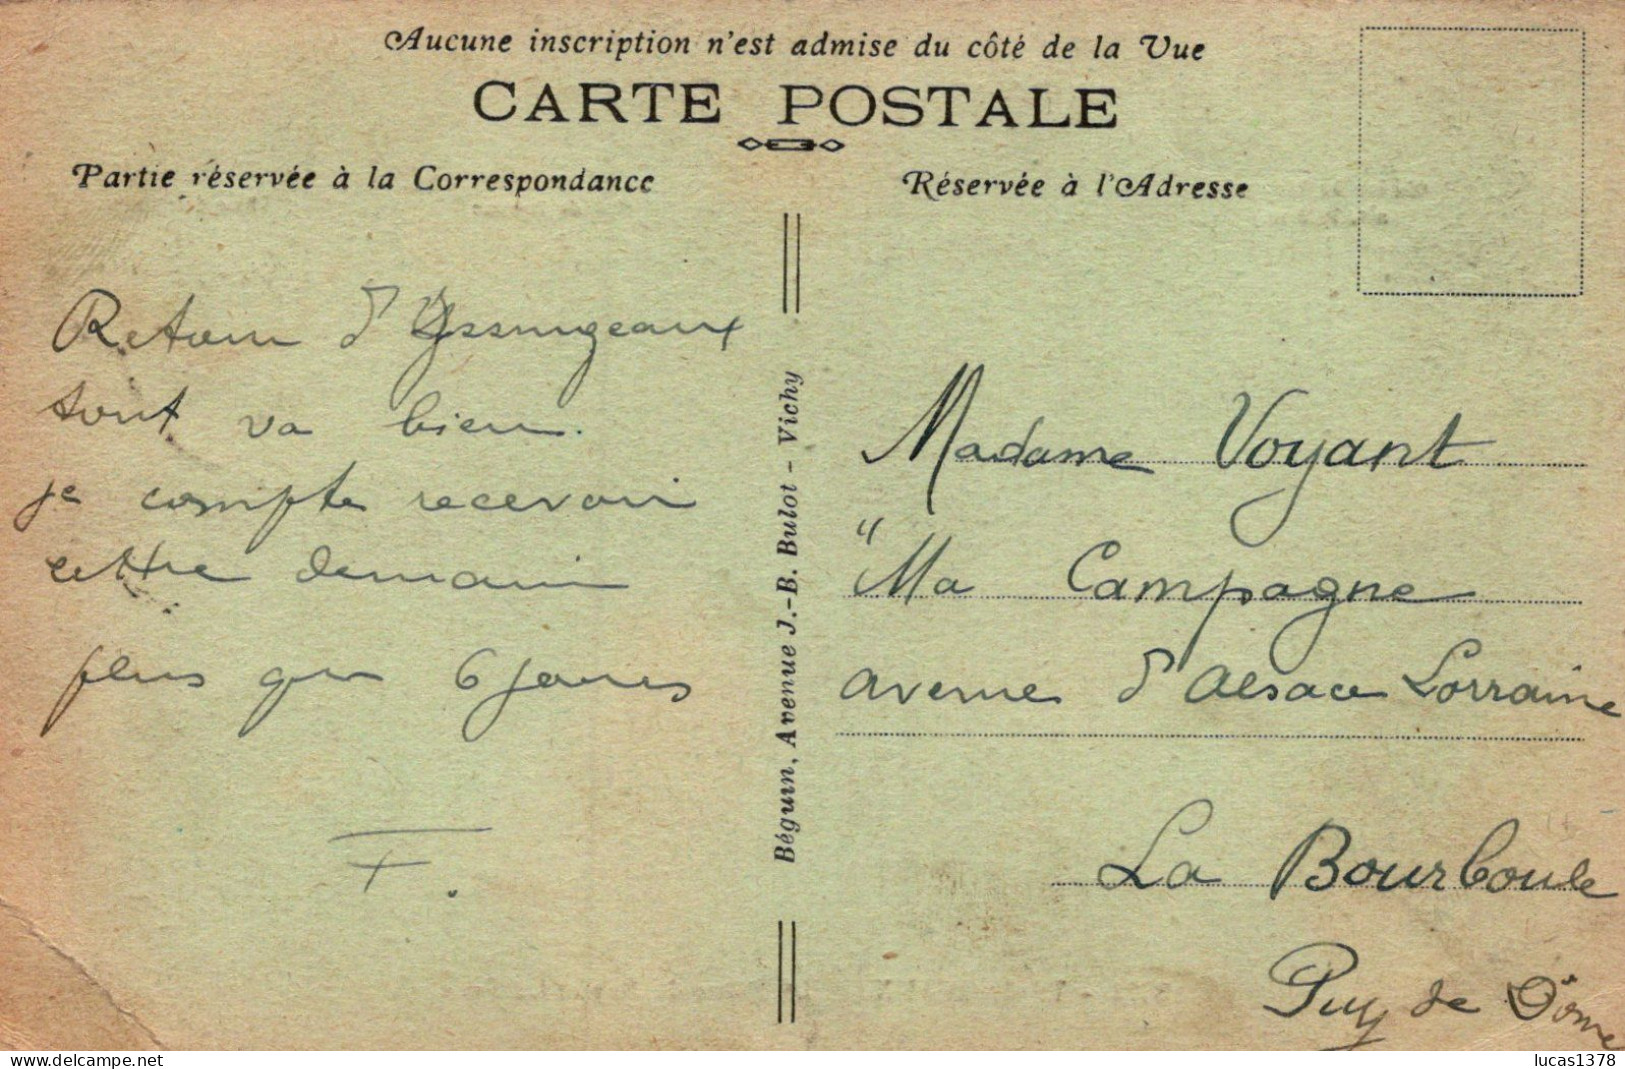 Aucune inscription n'est admise du côté de la Vue
CARTE POSTALE
Partie réservée à la Correspondance
Réservée à l'Adresse
Retour d'Yssingeaux
tout va bien.
je compte recevoir
lettre demain
plus que 6 jours
F.
Béguin, Avenue J.-B. Bulot - Vichy
Madame Voyant
"Ma Campagne
avenue d'Alsace Lorraine
La Bourboule
Puy de Dôme
www.delcampe.net
lucas1378